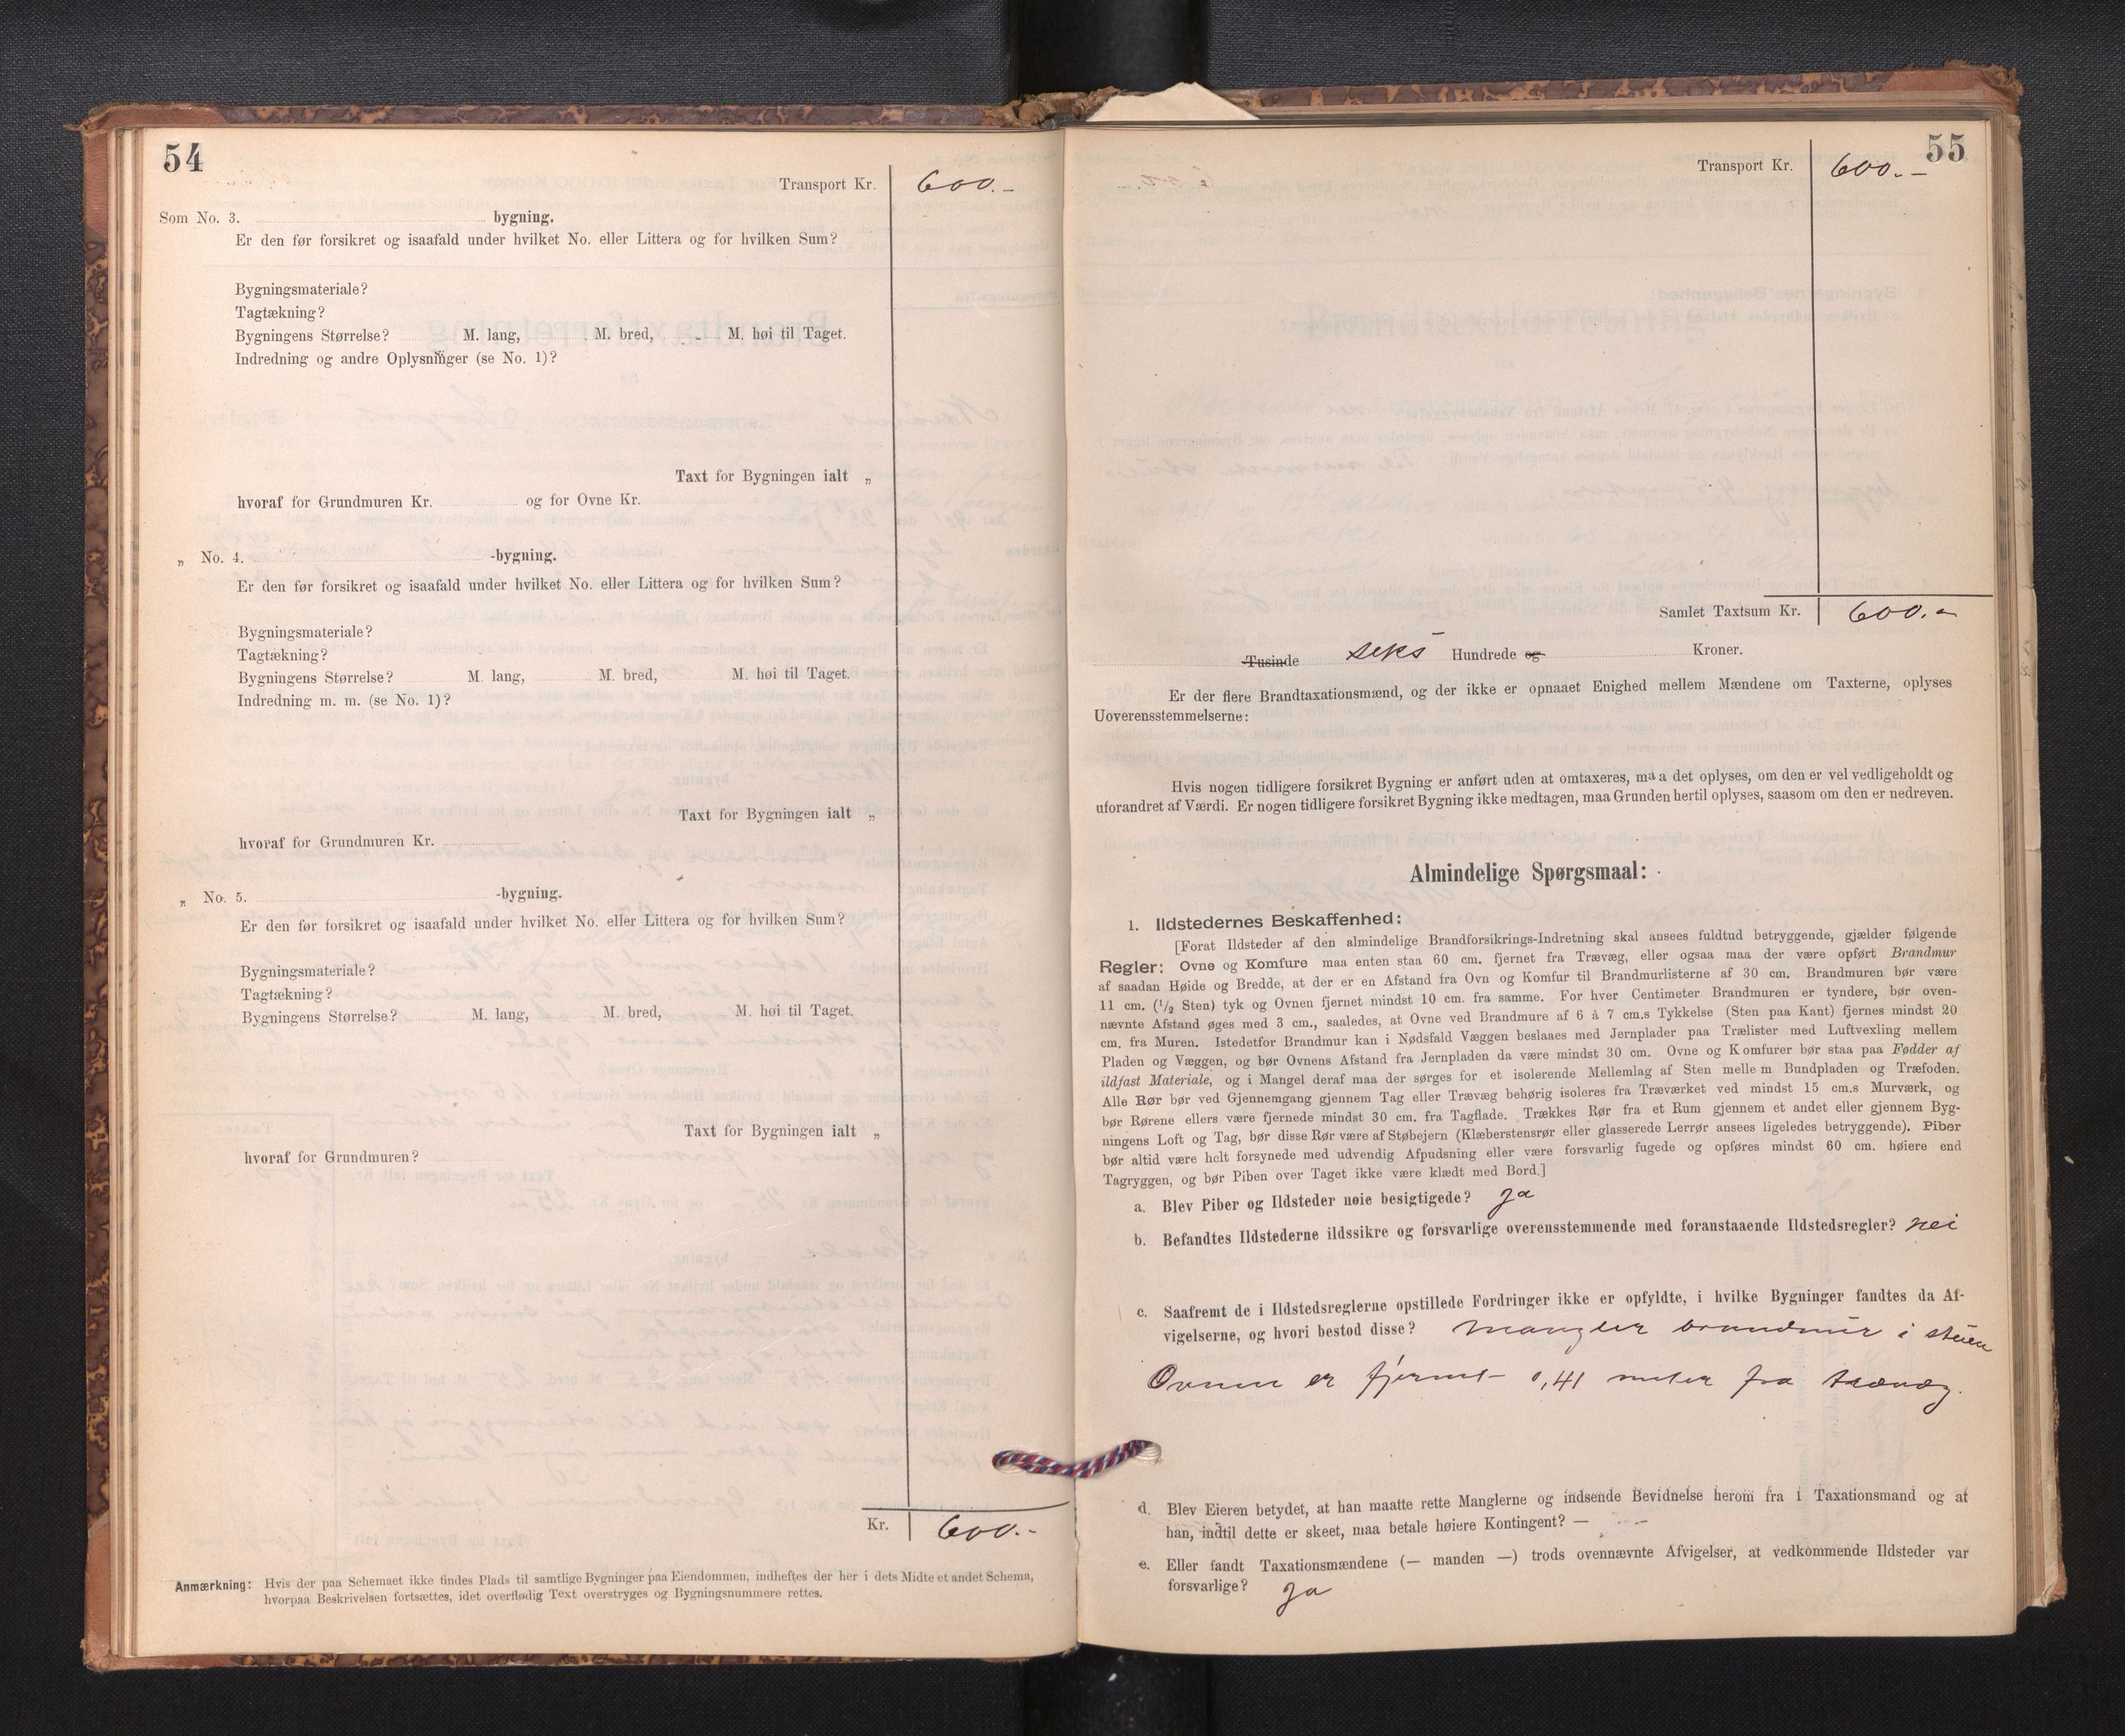 54
Transport Kr. 600.-
Som No. 3. bygning.
Er den før forsikret og isaafald under hvilket No. eller Littera og for hvilken Sum?
Bygningsmateriale?
Tagtækning?
Bygningens Størrelse? M. lang, M. bred, „ M. høi til Taget.
Indredning og andre Oplysninger (se No. 1)?
Taxt for Bygningen ialt „
hvoraf for Grundmuren Kr. og for Ovne Kr.
„ No. 4. -bygning.
Er den før forsikret og isaafald under hvilket No. eller Littera og for hvilken Sum?
Bygningsmateriale?
Tagtækning?
Bygningens Størrelse? M. lang, M. bred, M. høi til Taget.
Indredning m. m. (se No. 1)?
Taxt for Bygningen ialt „
hvoraf for Grundmuren Kr.
„ No. 5. -bygning.
Er den før forsikret og isaafald under hvilket No. eller Littera og for hvilken Sum?
Bygningsmateriale?
Tagtækning?
Bygningens Størrelse? M. lang, M. bred, M. høi til Taget.
Taxt for Bygningen ialt „
hvoraf for Grundmuren?
Kr. 600.-
Anmærkning: Hvis der paa Schemaet ikke findes Plads til samtlige Bygninger paa Eiendommen, indheftes der her i dets Midte et andet Schema,
hvorpaa Beskrivelsen fortsættes, idet overflødig Text overstryges og Bygningsnummere rettes.
55
Transport Kr. 600.-
Samlet Taxtsum Kr. 600.-
Tusinde seks Hundrede og Kroner.
Er der flere Brandtaxationsmænd, og der ikke er opnaaet Enighed mellem Mændene om Taxterne, oplyses
Uoverensstemmelserne:
Hvis nogen tidligere forsikret Bygning er anført uden at omtaxeres, maa det oplyses, om den er vel vedligeholdt og
uforandret af Værdi. Er nogen tidligere forsikret Bygning ikke medtagen, maa Grunden hertil oplyses, saasom om den er nedreven.
Almindelige Spørgsmaal:
1. Ildstedernes Beskaffenhed:
[Forat Ildsteder af den almindelige Brandforsikrings-Indretning skal ansees fuldtud betryggende, gjælder følgende
Regler: Ovne og Komfure maa enten staa 60 cm. fjernet fra Trævæg, eller ogsaa maa der være opført Brandmur
af saadan Høide og Bredde, at der er en Afstand fra Ovn og Komfur til Brandmurlisterne af 30 cm. Brandmuren bør være
11 cm. (1/2 Sten) tyk og Ovnen fjernet mindst 10 cm. fra samme. For hver Centimeter Brandmuren er tyndere, bør oven-
nævnte Afstand øges med 3 cm., saaledes, at Ovne ved Brandmure af 6 à 7 cm.s Tykkelse (Sten paa Kant) fjernes mindst 20
cm. fra Muren. Istedetfor Brandmur kan i Nødsfald Væggen beslaaes med Jernplader paa Trælister med Luftvexling mellem
Pladen og Væggen, og bør Ovnens Afstand fra Jernpladen da være mindst 30 cm. Ovne og Komfurer bør staa paa Fødder af
ildfast Materiale, og i Mangel deraf maa der sørges for et isolerende Mellemlag af Sten mellem Bundpladen og Træfoden.
Alle Rør bør ved Gjennemgang gjennem Tag eller Trævæg behørig isoleres fra Træværket ved mindst 15 cm.s Murværk, og
bør Rørene ellers være fjernede mindst 30 cm. fra Tagflade. Trækkes Rør fra et Rum gjennem et andet eller gjennem Byg-
ningens Loft og Tag, bør disse Rør være af Støbejern (Klæberstensrør eller glasserede Lerrør ansees ligeledes betryggende). Piber
bør altid være helt forsynede med udvendig Afpudsning eller være forsvarlig fugede og opføres mindst 60 cm. høiere end
Tagryggen, og bør Piben over Taget ikke være klædt med Bord.]
a. Blev Piber og Ildsteder nøie besigtigede? ja
b. Befandtes Ildstederne ildssikre og forsvarlige overensstemmende med foranstaaende Ildstedsregler? nei
c. Saafremt de i Ildstedsreglerne opstillede Fordringer ikke er opfyldte, i hvilke Bygninger fandtes da Af-
vigelserne, og hvori bestod disse? Mangler brandmür i stüen
Ovnen er fjernet 0,41 meter fra trævæg.
d. Blev Eieren betydet, at han maatte rette Manglerne og indsende Bevidnelse herom fra 1 Taxationsmand og at
han, indtil dette er skeet, maa betale høiere Kontingent? —
e. Eller fandt Taxationsmændene (— manden —) trods ovennævnte Afvigelser, at vedkommende Ildsteder var
forsvarlige? ja